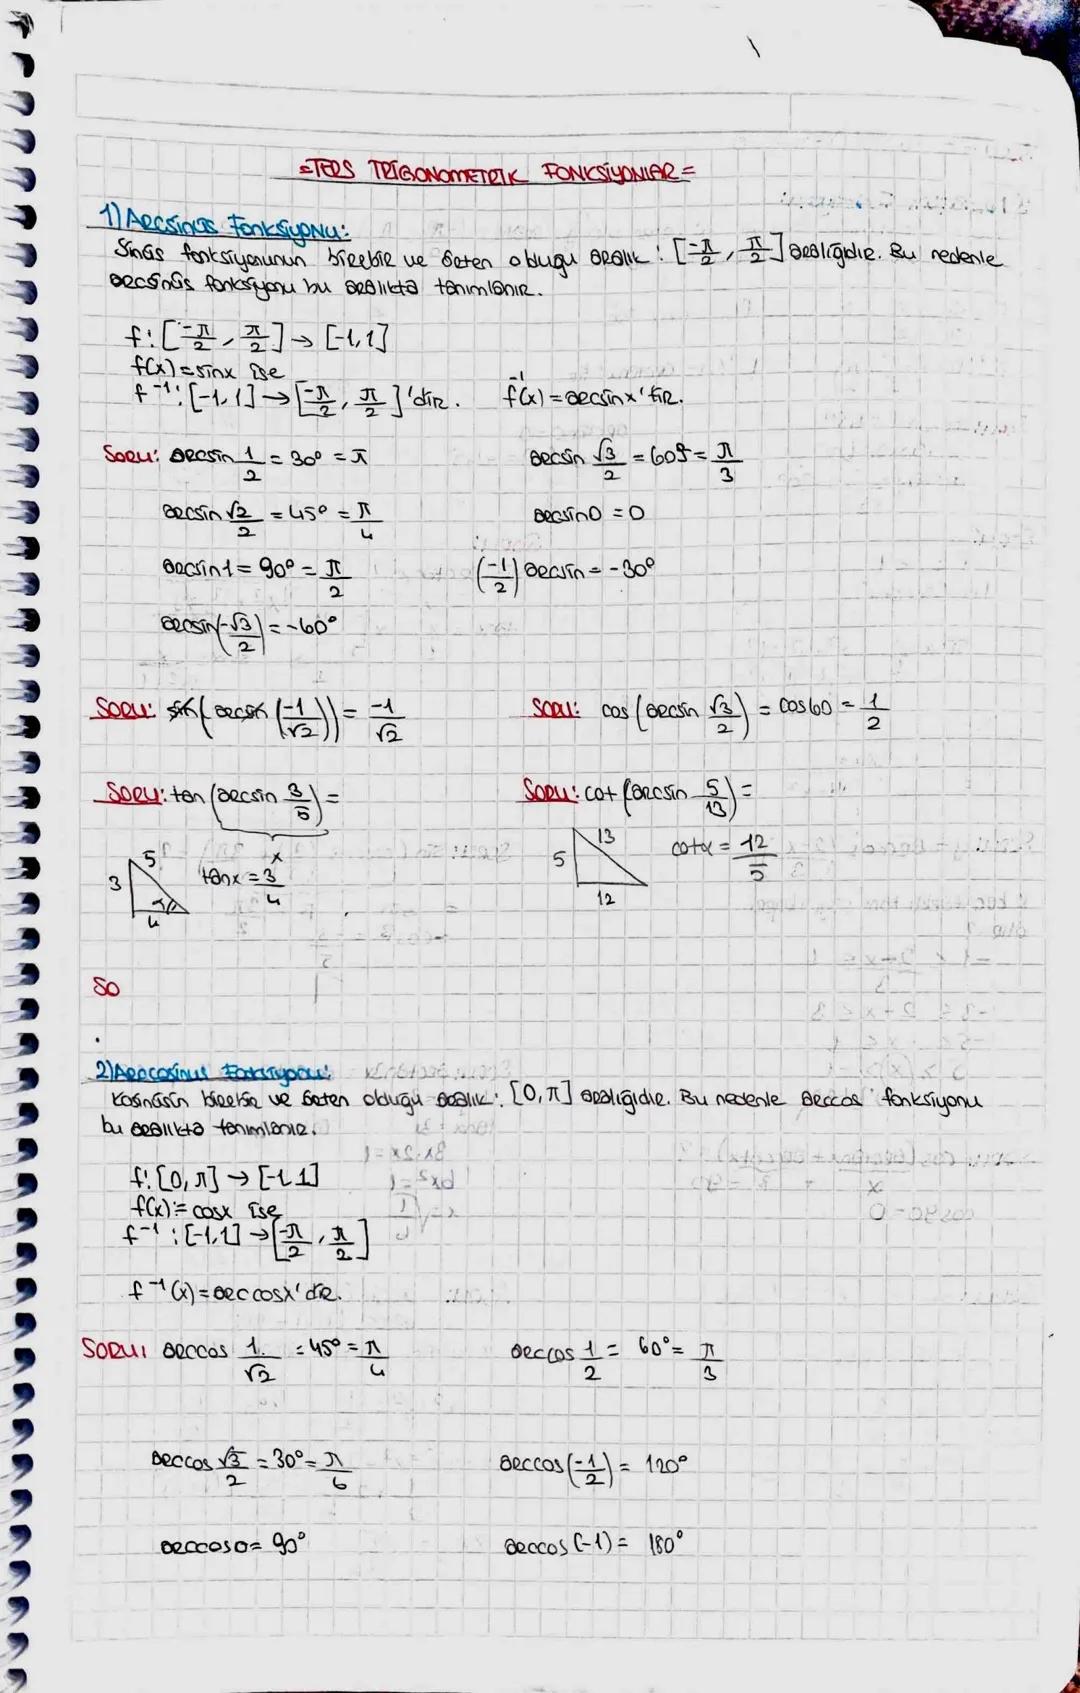 =TERS TRİGONOMETRİK FONKSİYONLAR=
1) Arcsinüs Fonksiyonu:
Sinüs fonksiyonunun birebir ve örten olduğu aralık: [-π/2, π/2] aralığıdır. Bu nedenle
arcsinüs fonksiyonu bu aralıkta tanımlanır.
f: [-π/2, π/2] → [-1,1]
f(x) = sinx ise
f⁻¹: [-1,1] → [-π/2, π/2]'dir. f⁻¹(x) = arcsinx'tir.
Soru: arcsin 1/2 = 30° = π arcsin √3/2 = 60° = π/3
arcsin √2/2 = 45° = π/4 arcsin0 = 0
arcsin1 = 90° = π/2 (-1/2) arcsin = -30°
arcsin(-√3/2) = -60°
Soru: sin(arcsin(-1/√2)) = -1/√2 Soru: cos(arcsin √3/2) = cos60 = 1/2
Soru: tan(arcsin 3/5) = Soru: cot(arcsin 5/13) =
x
3 5 4 tanx = 3/4 5 13 12 cotx = 12/5
So
2) Arccosinus Fonksiyonu:
Kosinüsün birebir ve örten olduğu aralık: [0,π] aralığıdır. Bu nedenle arccos fonksiyonu
bu aralıkta tanımlanır.
f: [0,π] → [-1,1]
f(x) = cosx ise
f⁻¹: [-1,1] → [-π/2, π/2]
f⁻¹(x) = arccosx'dir.
Soru: arccos 1/√2 = 45° = π/4 arccos 1/2 = 60° = π/3
arccos √3/2 = 30° = π/6 arccos(-1/2) = 120°
arccos0 = 90° arccos(-1) = 180°